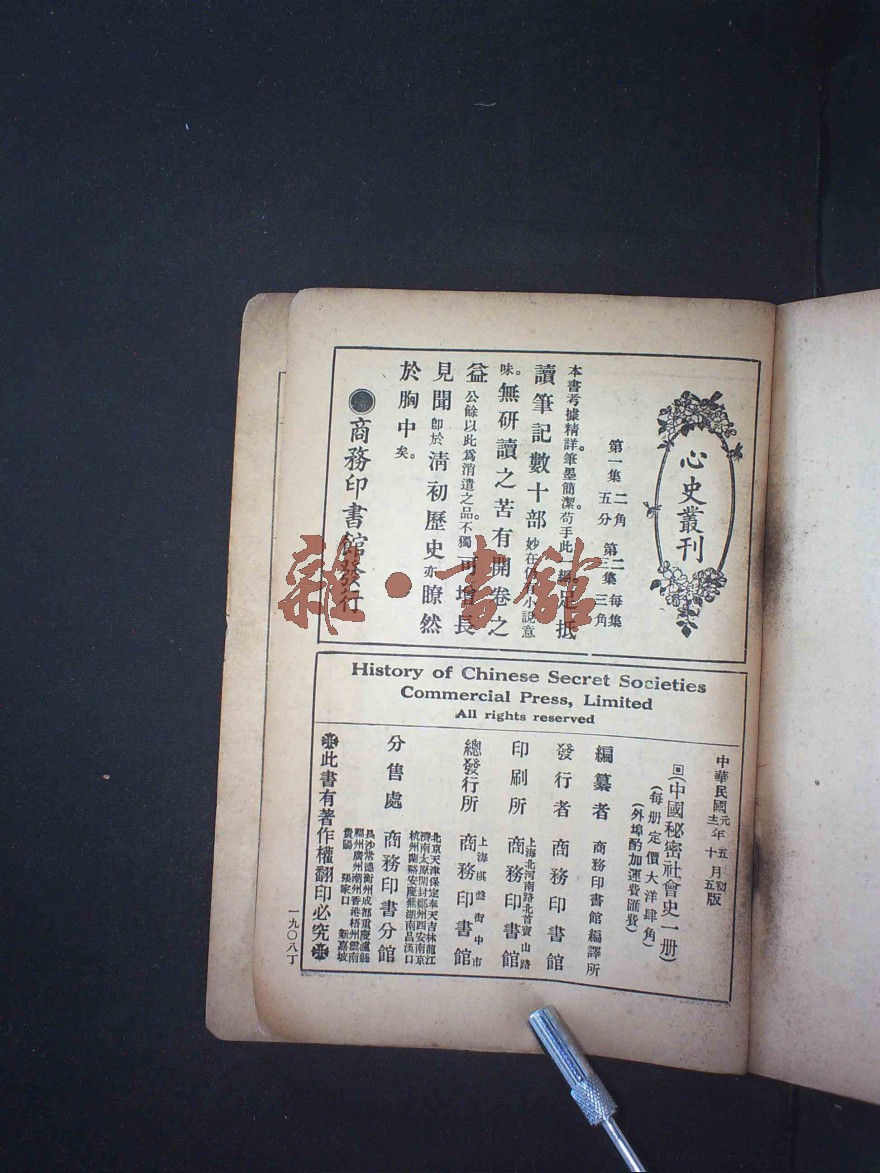 心史叢刊
第一集 二角五分
第二三集 每集三角
本書考據精詳。筆墨簡潔。苟手此一編。足抵
讀筆記數十部。妙在
小說意
味。無研讀之苦。有開卷之
益。公餘以此爲消遣之品。不獨可增長
見聞。即於淸初歷史。亦瞭然
於胸中矣。
商務印書館發行
雜·書館
History of Chinese Secret Societies
Commercial Press, Limited
All rights reserved
中華民國元年五月初版
十五版
(中國秘密社會史一册)
(每册定價大洋肆角)
(外埠酌加運費匯費)
編纂者 商務印書館編譯所
發行者 商務印書館
印刷所 上海北河南路北首寶山路 商務印書館
總發行所 上海棋盤街中市 商務印書館
分售處 商務印書分館
北京天津保定奉天吉林龍江
濟南太原開封鄭州西安南京
杭州蘭谿安慶蕪湖南昌漢口
長沙常德衡州成都重慶瀘縣
福州廣州潮州香港梧州雲南
貴陽 張家口 新嘉坡
此書有著作權翻印必究
一九〇八丁